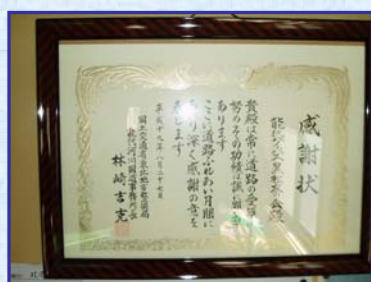 感謝状
貴殿は常に道路の愛護に
努めその功績は誠に顕著で
あります
ここに道路ふれあい月間に
あたり深く感謝の意を
表します
平成十九年八月二十七日
国土交通省東北地方整備局
能代河川国道事務所長
林崎吉克